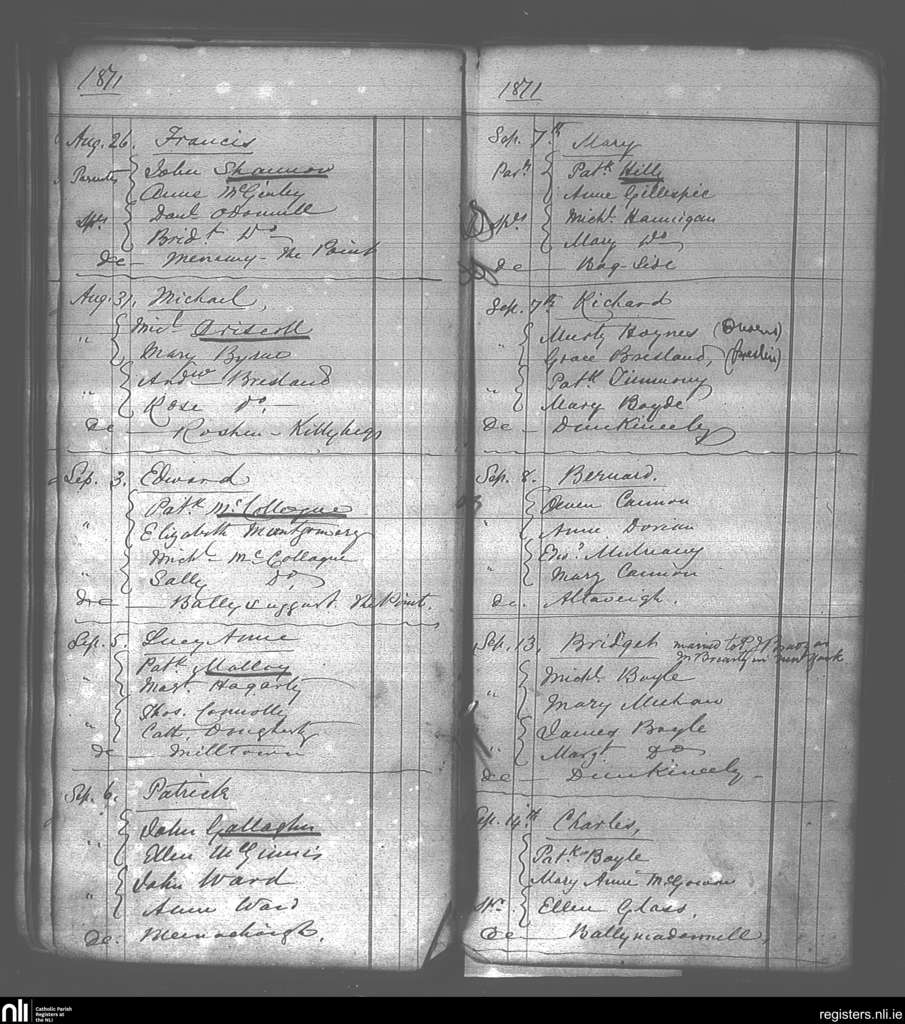 1871
Aug. 26. Francis
Parents John Shannon
Anne McGinley
Sprs Danl ODonnell
Bridt. Do
de Menamy - The Point
Aug. 31. Michael,
" Michl Driscoll
Mary Byrne
" Andw Bresland
Rose Do.
De Roshin - Killybegs
Sep. 3. Edward
Patk McCollogue
" Elizabeth Montgomery
Michl McCollague
" Sally Do,
de The Point.
Sep. 5. Lucy Anne
" Patk Molloy
Margt. Hagarty
" Thos. Connolly
Cath. Dougherty
de Milltown
Sep. 6. Patrick
" John Gallagher
Ellen McGinnis
" John Ward
Anne Ward
De.
1871
Sep. 7.th Mary
Parts Patk Hill
Anne Gillespie
Sprs. Michl. Hannigan
Mary Do
de Bog-Side
Sep. 7th Richard
" Murty Hoynes (Owens)
Grace Bresland, (Breslin)
" Patk Timmony
Mary Boyde
De Dunkineely
Sep. 8. Bernard.
Owen Cannon
" Anne Dorian
Edwd. Mulreany
" Mary Cannon
de. Altaveigh.
Sep. 13. Bridget married to P.J.
in New York
" Michl Boyle
Mary Meehan
" James Boyle
Margt. Do
de Dunkineely -
Sep. 14th Charles,
Patk Boyle
Mary Anne McGowan
Sp. Ellen Glass,
de Ballymacdonnell,
nli
Catholic Parish
Registers at
the NLI
registers.nli.ie